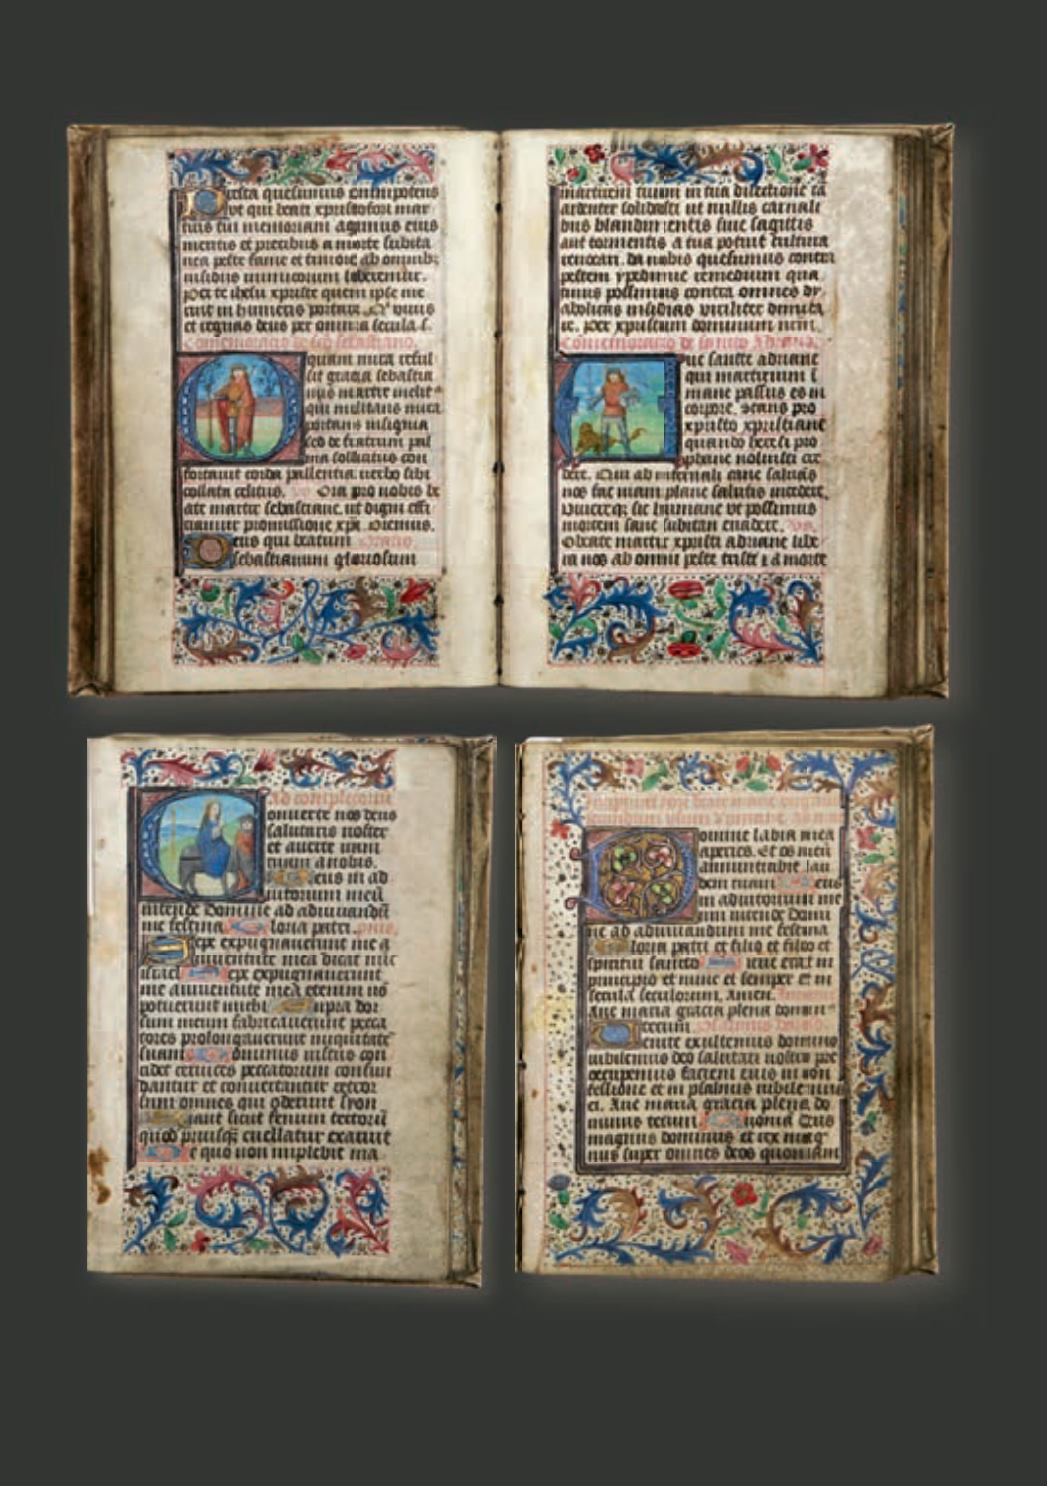 resta quesumus omnipotens
ut qui beati xpristofori mar
tiris tui memoriam agimus eius
meritis et precibus a morte subita
nea peste fame et timore ab omnibus
insidiis inimicorum liberemur.
Per te ihesu xpriste quem ipse me
ruit in humeris portare. Qui vivis
et regnas deus per omnia secula s.
Commemoracio de sco sebastiano.
quam mira reful
sit gracia sebastia
nus martir
qui militaris
portans insignia
sed de fratrum pal
ma sollicitus con
fortavit corda pallentia verbo sibi
collata celitus. Ora pro nobis be
ate martir sebastiane. ut digni effi
ciamur promissione xpi. Oremus.
Deus qui beatum Oracio
sebastianum gloriosum
martirem tuum in tua dilectione
ardenter solidasti ut nullis carnali
bus blandimentis sive sagittis
aut tormentis a tua potuit cultura
revocari. da nobis quesumus contra
pestem ypedimie remedium qua
tinus possimus contra omnes dy
abolicas insidias viriliter
Per xpristum dominum
Commemoracio de sancto Adriano.
Ave sancte adriane
qui martirium
mane passus es in
corpore. Stans pro
xpristo xpristiane
quando
phane noluisti cre
dere. Qui ab infernali cane salvas
nos fac viam plane salutis incedere.
humane ut possimus
mortem sane subitan evadere. vs.
O beate martir xpristi adriane libe
ra nos ab omni peste tristi et a morte
Ad completorium
onverte nos deus
salutaris noster
et averte iram
tuam a nobis.
Deus in ad
iutorium meum
intende Domine ad adiuvandum
me festina Gloria patri.
Sepe expugnaverunt me a
iuventute mea dicat nunc
israel Sepe expugnaverunt
me a iuventute mea etenim non
potuerunt michi Supra dor
sum meum fabricaverunt pecca
tores prolongaverunt iniquitate
suam Dominus iustus con
cidet cervices peccatorum confun
dantur et convertantur retror
sum omnes qui oderunt syon
Fiant sicut fenum tectorum
quod priusquam evellatur exaruit
De quo non implebit ma
beate marie virginis
secundum usum
omine labia mea
aperies. Et os meum
annuntiabit lau
dem tuam Deus
in adiutorium me
um intende Domi
ne ad adiuvandum me festina
Gloria patri et filio et
spiritui sancto Sicut erat in
principio et nunc et semper et in
secula seculorum. Amen.
Ave maria gracia plena domin
tecum.
Venite exultemus domino
iubilemus deo salutari nostro pre
occupemus faciem eius in con
fessione et in psalmis iubilemus
ei. Ave maria gracia plena do
minus tecum Quoniam Deus
magnus dominus et rex mag
nus super omnes deos quoniam